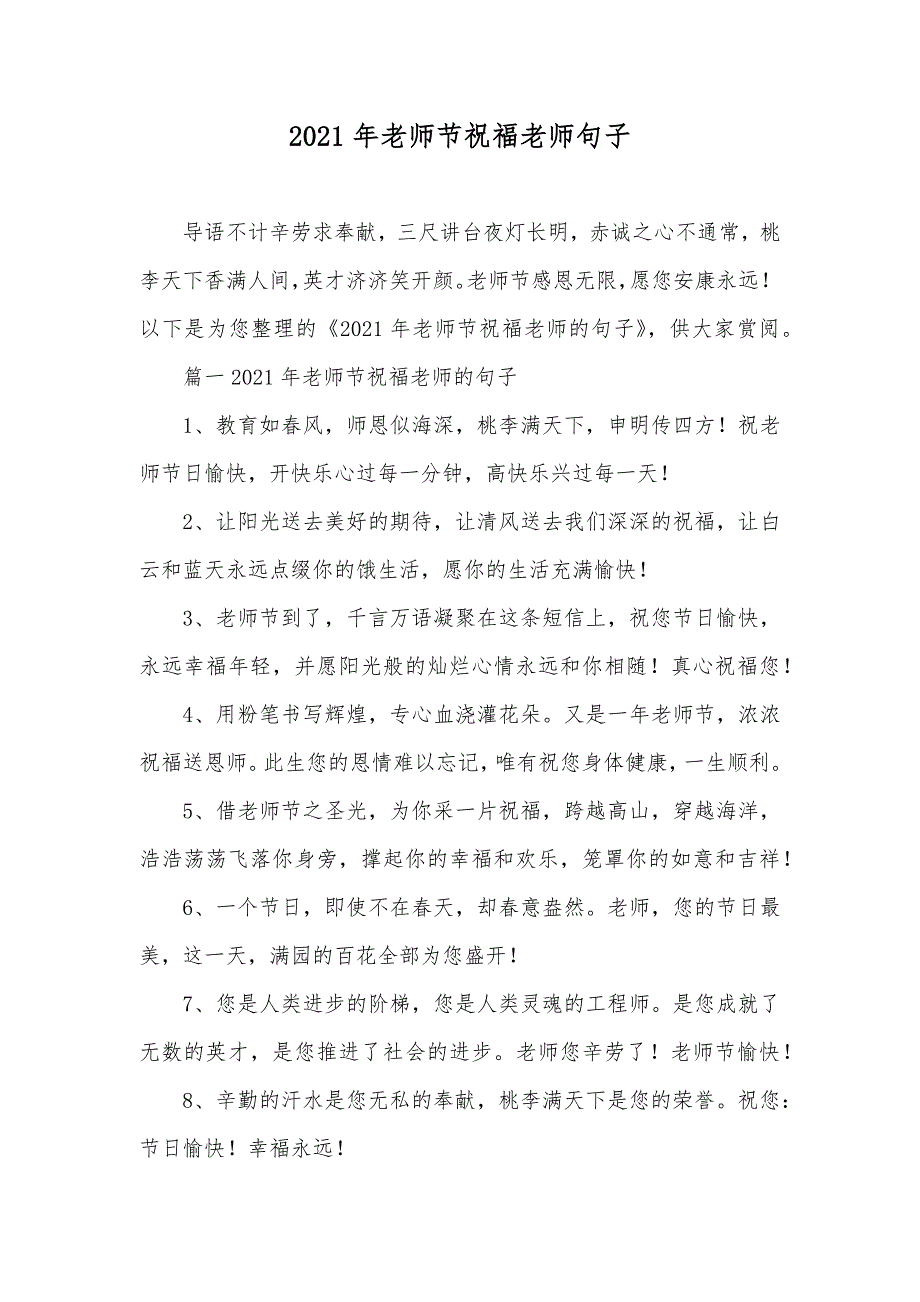 2021年老师节祝福老师句子
导语不计辛劳求奉献，三尺讲台夜灯长明，赤诚之心不通常，桃
李天下香满人间，英才济济笑开颜。老师节感恩无限，愿您安康永远！
以下是为您整理的《2021年老师节祝福老师的句子》，供大家赏阅。
篇一2021年老师节祝福老师的句子
1、教育如春风，师恩似海深，桃李满天下，申明传四方！祝老
师节日愉快，开快乐心过每一分钟，高快乐兴过每一天！
2、让阳光送去美好的期待，让清风送去我们深深的祝福，让白
云和蓝天永远点缀你的饿生活，愿你的生活充满愉快！
3、老师节到了，千言万语凝聚在这条短信上，祝您节日愉快，
永远幸福年轻，并愿阳光般的灿烂心情永远和你相随！真心祝福您！
4、用粉笔书写辉煌，专心血浇灌花朵。又是一年老师节，浓浓
祝福送恩师。此生您的恩情难以忘记，唯有祝您身体健康，一生顺利。
5、借老师节之圣光，为你采一片祝福，跨越高山，穿越海洋，
浩浩荡荡飞落你身旁，撑起你的幸福和欢乐，笼罩你的如意和吉祥！
6、一个节日，即使不在春天，却春意盎然。老师，您的节日最
美，这一天，满园的百花全部为您盛开！
7、您是人类进步的阶梯，您是人类灵魂的工程师。是您成就了
无数的英才，是您推进了社会的进步。老师您辛劳了！老师节愉快！
8、辛勤的汗水是您无私的奉献，桃李满天下是您的荣誉。祝您：
节日愉快！幸福永远！